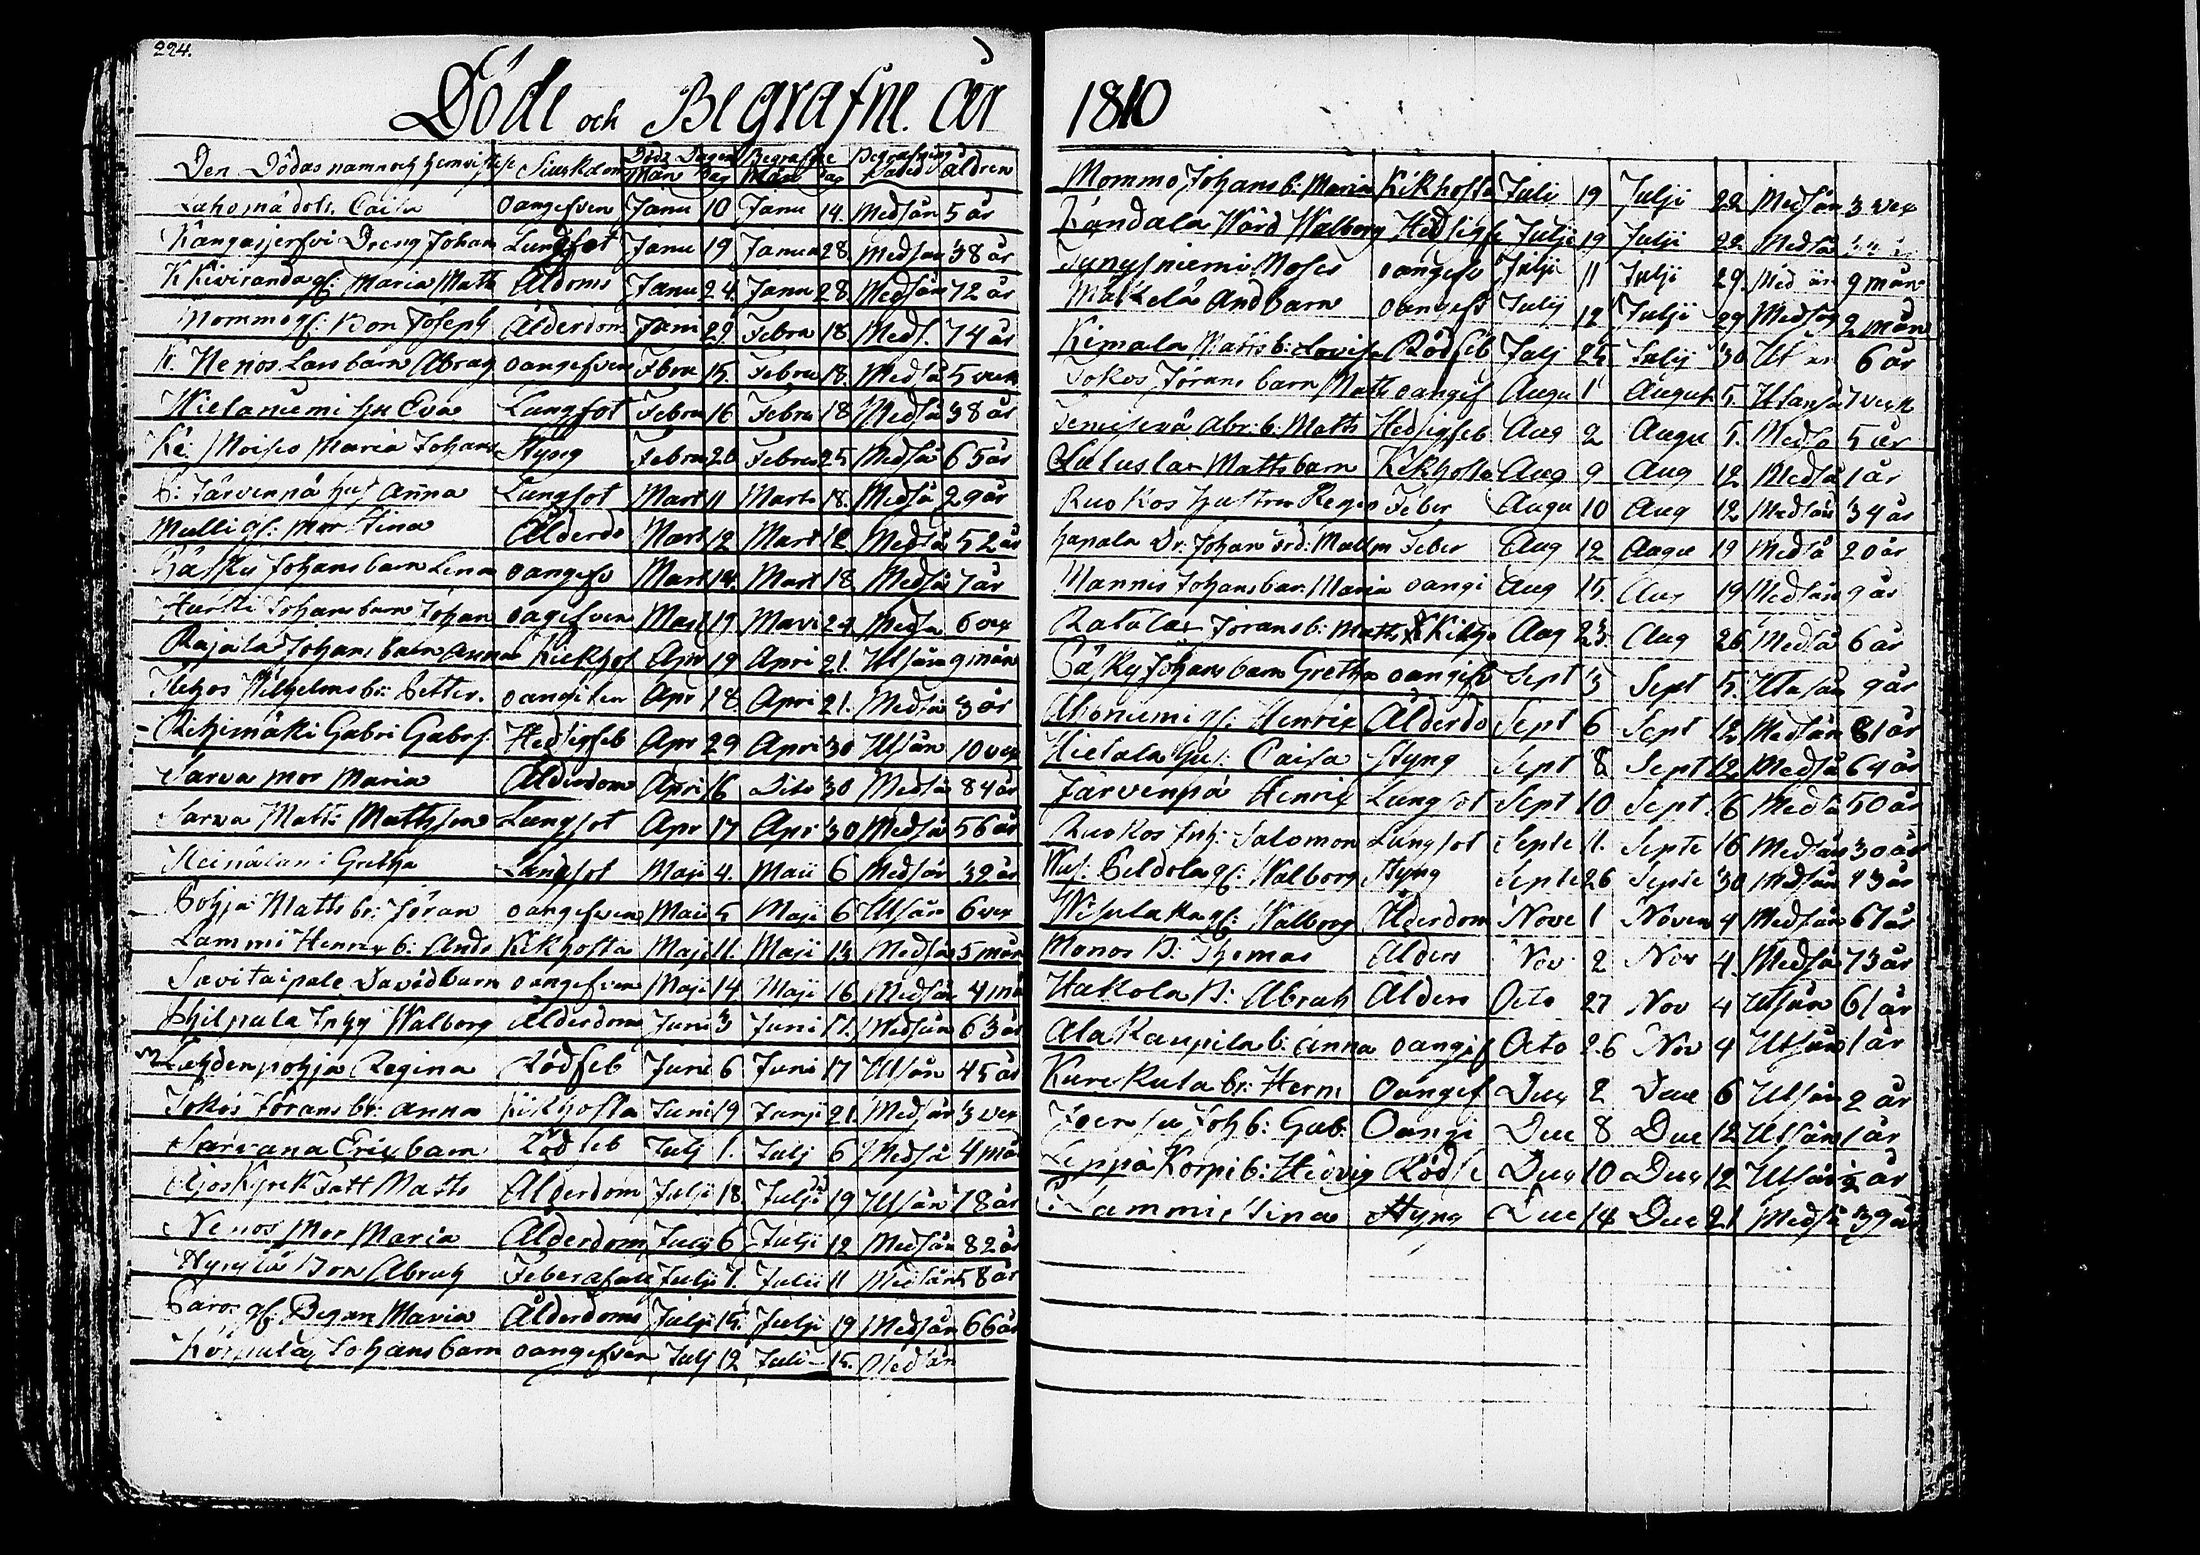 224.
Döde och Begrafne. år
Den Dödas namn och hemvist Siukdom Döds Dagen Begrafne Begrafnings åldren
Mån Dag Mån Dag
Lahomä dott. Caisa oangifven Janu 10 Janu 14. Medsån 5 år
Kangasjerfvi Dreng Johan Lungsot Janu 19 Janua 28 Medsån 38 år
K Kiviranda gf: Maria Matts Åldoms Janu 24. Janu 28 Medsån 72 år
Mommo gf: Bon Joseph Ålderdom Janu 29. Febru 18 Meds. 74 år
N. Nenos Lars barn Abrag oangifven Fbru 15. Febru 18. Medså 5 vek
Wietaniemi hu Eva Lungsot Febru 16 Febru 18 Medså 38 år
Ke: Moisio Maria Johans Styng Febru 20 Febru 25 Medså 65 år
P: Järvenpä hus Anna Lungsot Mart 11 Marts 18. Medså 29 år
Mulli gf: mor Stina Ålderdo Mart 12 Mart 18 Medså 52 år
Påsky Johans barn Lena oangifv Mart 14. Mart 18 Medså 7 år
Hurtti Johans barn Johan oagifven Mart 19. Mart 24 Medså 6 vex
Rajala Johans barn Anna Kiekhos Apr 19 Apri 21. Utsån 9 mån
Wilhelms br: Petter. oangifen Apr 18 Apri 21. Medså 3 år
- Rehimäki Gabri Gabrs. Hedsigfeb Apr 29 Apri 30 Utsån 10 vex
Sarva mor Maria Ålderdom Apri 16 Dito 30 Medså 84 år
Sarva Matts Mattsson Lungsot Apr 17 Apri 30 Medså 56 år
Heinälan i Gretha Lungsot Maji 4. Maii 6 Medsån 39 år
Pohja Matts br: Jöran oangifven Maii 5 Maji 6 Utsån 6 vex
Lammi Henrix b: Ands Kikhosta Maji 11. Maji 13 Medså 5 mån
Savitaipale David barn oangifven Maji 14 Maji 16 Medsån 4 må
Philpula Inhy Walborg Ålderdom Juni 3 Juni 17. Medsån 63 år
Lehdenpohja Regina Rödfeb Juni 6 Juni 17 Utsån 45 år
Jokos Jörans br: Anna Kikhosta Juni 19 Junji 21. Medsån 3 vex
Sarvana Eric barn Rödfeb Julj 1. Julj 6 Medså 4 mån
Kyrk Fatt Matts Ålderdom Julji 18. Julji 19 Utsån 78 år
Nenos Mor Maria Ålderdom Julji 6 Julji 12 Medsån 82 år
Bon Abrah Feber Julji 7. Julii 11 Medsån 58 år
Paros gf. Maria Ålderdoms Julji 15. Julji 19 Medsån 66 år
Johans barn oangifven Julj 12 Juli 15. Medsån
1810
Mommo Johans b: Maria Kikhosta Juli 19 Julji 22 Medsån 3 vex
Kandala Wärd Walborg Hedsigfe Julji 19 Julji 22 Medså
Junesniemi Moses oangifv Julji 11 Julji 29. Med ån 9 mån
Mäkelä And barn oangif Julij 12 Julji 29 Medsån 2 mån
Kimala Matts b: Lovisa Rödfeb Julj 25. Julij 30 Ut ån 6 år
Jokos Jörans barn Matts oangif Augu 1 August 5. Utanså 7 vek
Abr: b: Matts Hedsigfeb Aug 2 Augu 5. Medså 5 år
Matts barn Kikhosta Aug 9 Aug 12 Medså 1 år
Ruokos hustru Regin Feber Augu 10 Aug 12 Medsån 34 år
hapala Dr: Johan Feber Aug 12 Augu 19 Medså 20 år
Mannis Johans bar: Maria oangi Aug 15. Aug 19 Medsån 9 år
Ratula Jörans b: Matts Kikho Aug 23. Aug 26 Medså 6 år
Påsky Johans barn Gretha oangifv Sept 3 Sept 5. Utasån 9 år
Ahoniemi gf: Henrix Ålderdo Sept 6 Sept 12 Medsån 81 år
Hietala hu: Caisa Styng Sept 8 Sept 12 Medså 64 år
Järvenpä Henrix Lungsot Sept 10 Sept. 16 Medså 50 år
Ruokos Inh: Salomon Lungsot Septe 11. Septe 16 Medsån 30 år
Peldola gf: Walborg Styng Septe 26 Septe 30 Medsån 43 år
gf: Walborg Ålderdom Nove 1 Noven 4 Medsån 67 år
Monos B: Thomas Ålders Nov 2 Nov 4. Medså 73 år
Hakola B: Abrah Ålders Octo 27 Nov 4 Utsån 61 år
Ala Kaupila b: Anna oangif Octo 26 Nov 4 Utsån 1 år
Kurikula br: Herm Oangif Dec 2 Dec 6 Utsån 2 år
Joh b: Gab: Oangi Dec 8 Dec 12 Utsån 1 år
Leppä Korpi b: Hedvig Röds Dec 10 Dec 12 Utsån 2 år
Lammi Stina Styng Dec 14 Dec 21 Medså 39 år